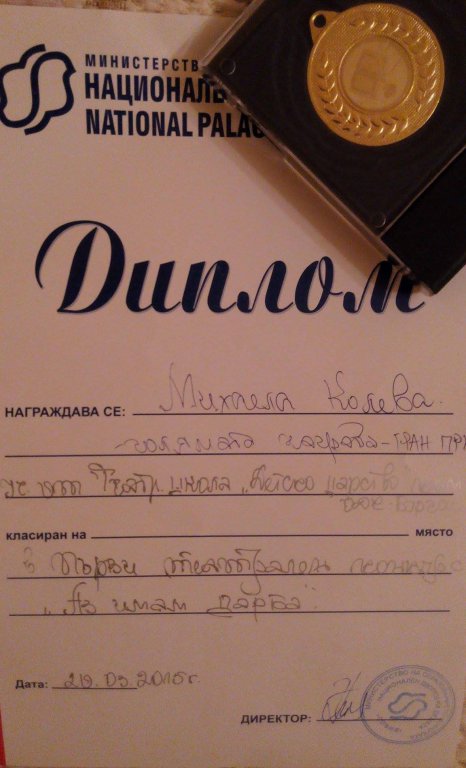 МИНИСТЕРСТВ
НАЦИОНАЛЕ
NATIONAL PALAC
Диплом
НАГРАЖДАВА СЕ: Михаела Колева
голямата награда - ГРАН ПРИ
от театр. школа „Детско царство"
класиран на място
в Първи театрален
„Аз имам дарба"
Дата: 29.03.2015г.
ДИРЕКТОР: